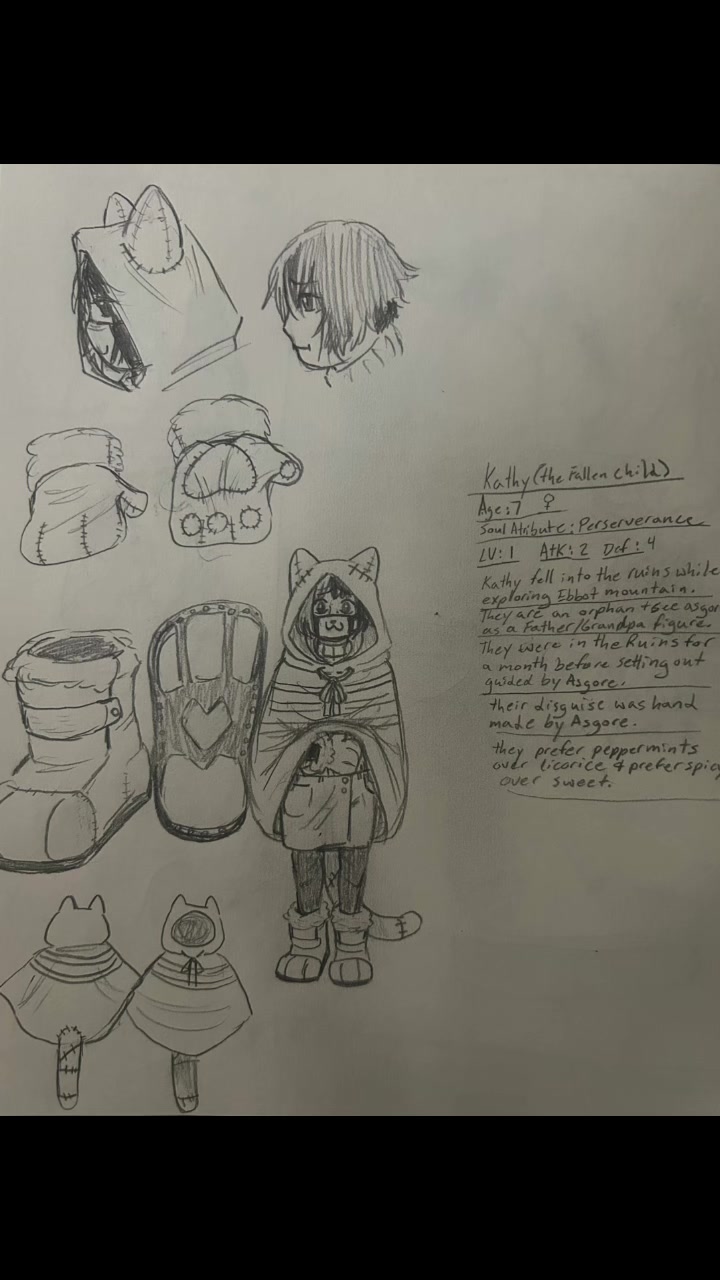 Kathy (the Fallen child)
Age: 7 ♀
Soul Atribute: Perserverance
LV: 1 AtK: 2 Def: 4
Kathy fell into the ruins while
exploring Ebbot mountain.
They are an orphan + see asgor
as a Father/Grandpa figure.
They were in the Ruins for
a month before setting out
guided by Asgore.
their disguise was hand
made by Asgore.
they prefer peppermints
over licorice & prefer spic
over sweet.